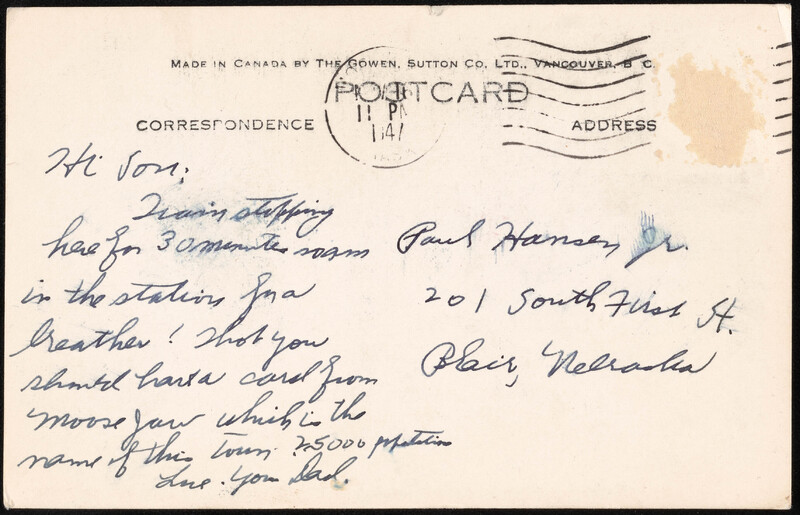 MADE IN CANADA BY THE GOWEN, SUTTON CO. LTD., VANCOUVER, B C.
POSTCARD
11 PM
1947
SASK
CORRESPONDENCE
ADDRESS
Hi Son;
Train stopping
here for 30 minutes so am
in the station for a
breather! Thot you
should have a card from
Moose Jaw which is the
name of this town. 25000 population
Love. Your Dad.
Paul Hansen Jr.
201 South First St.
Blair, Nebraska